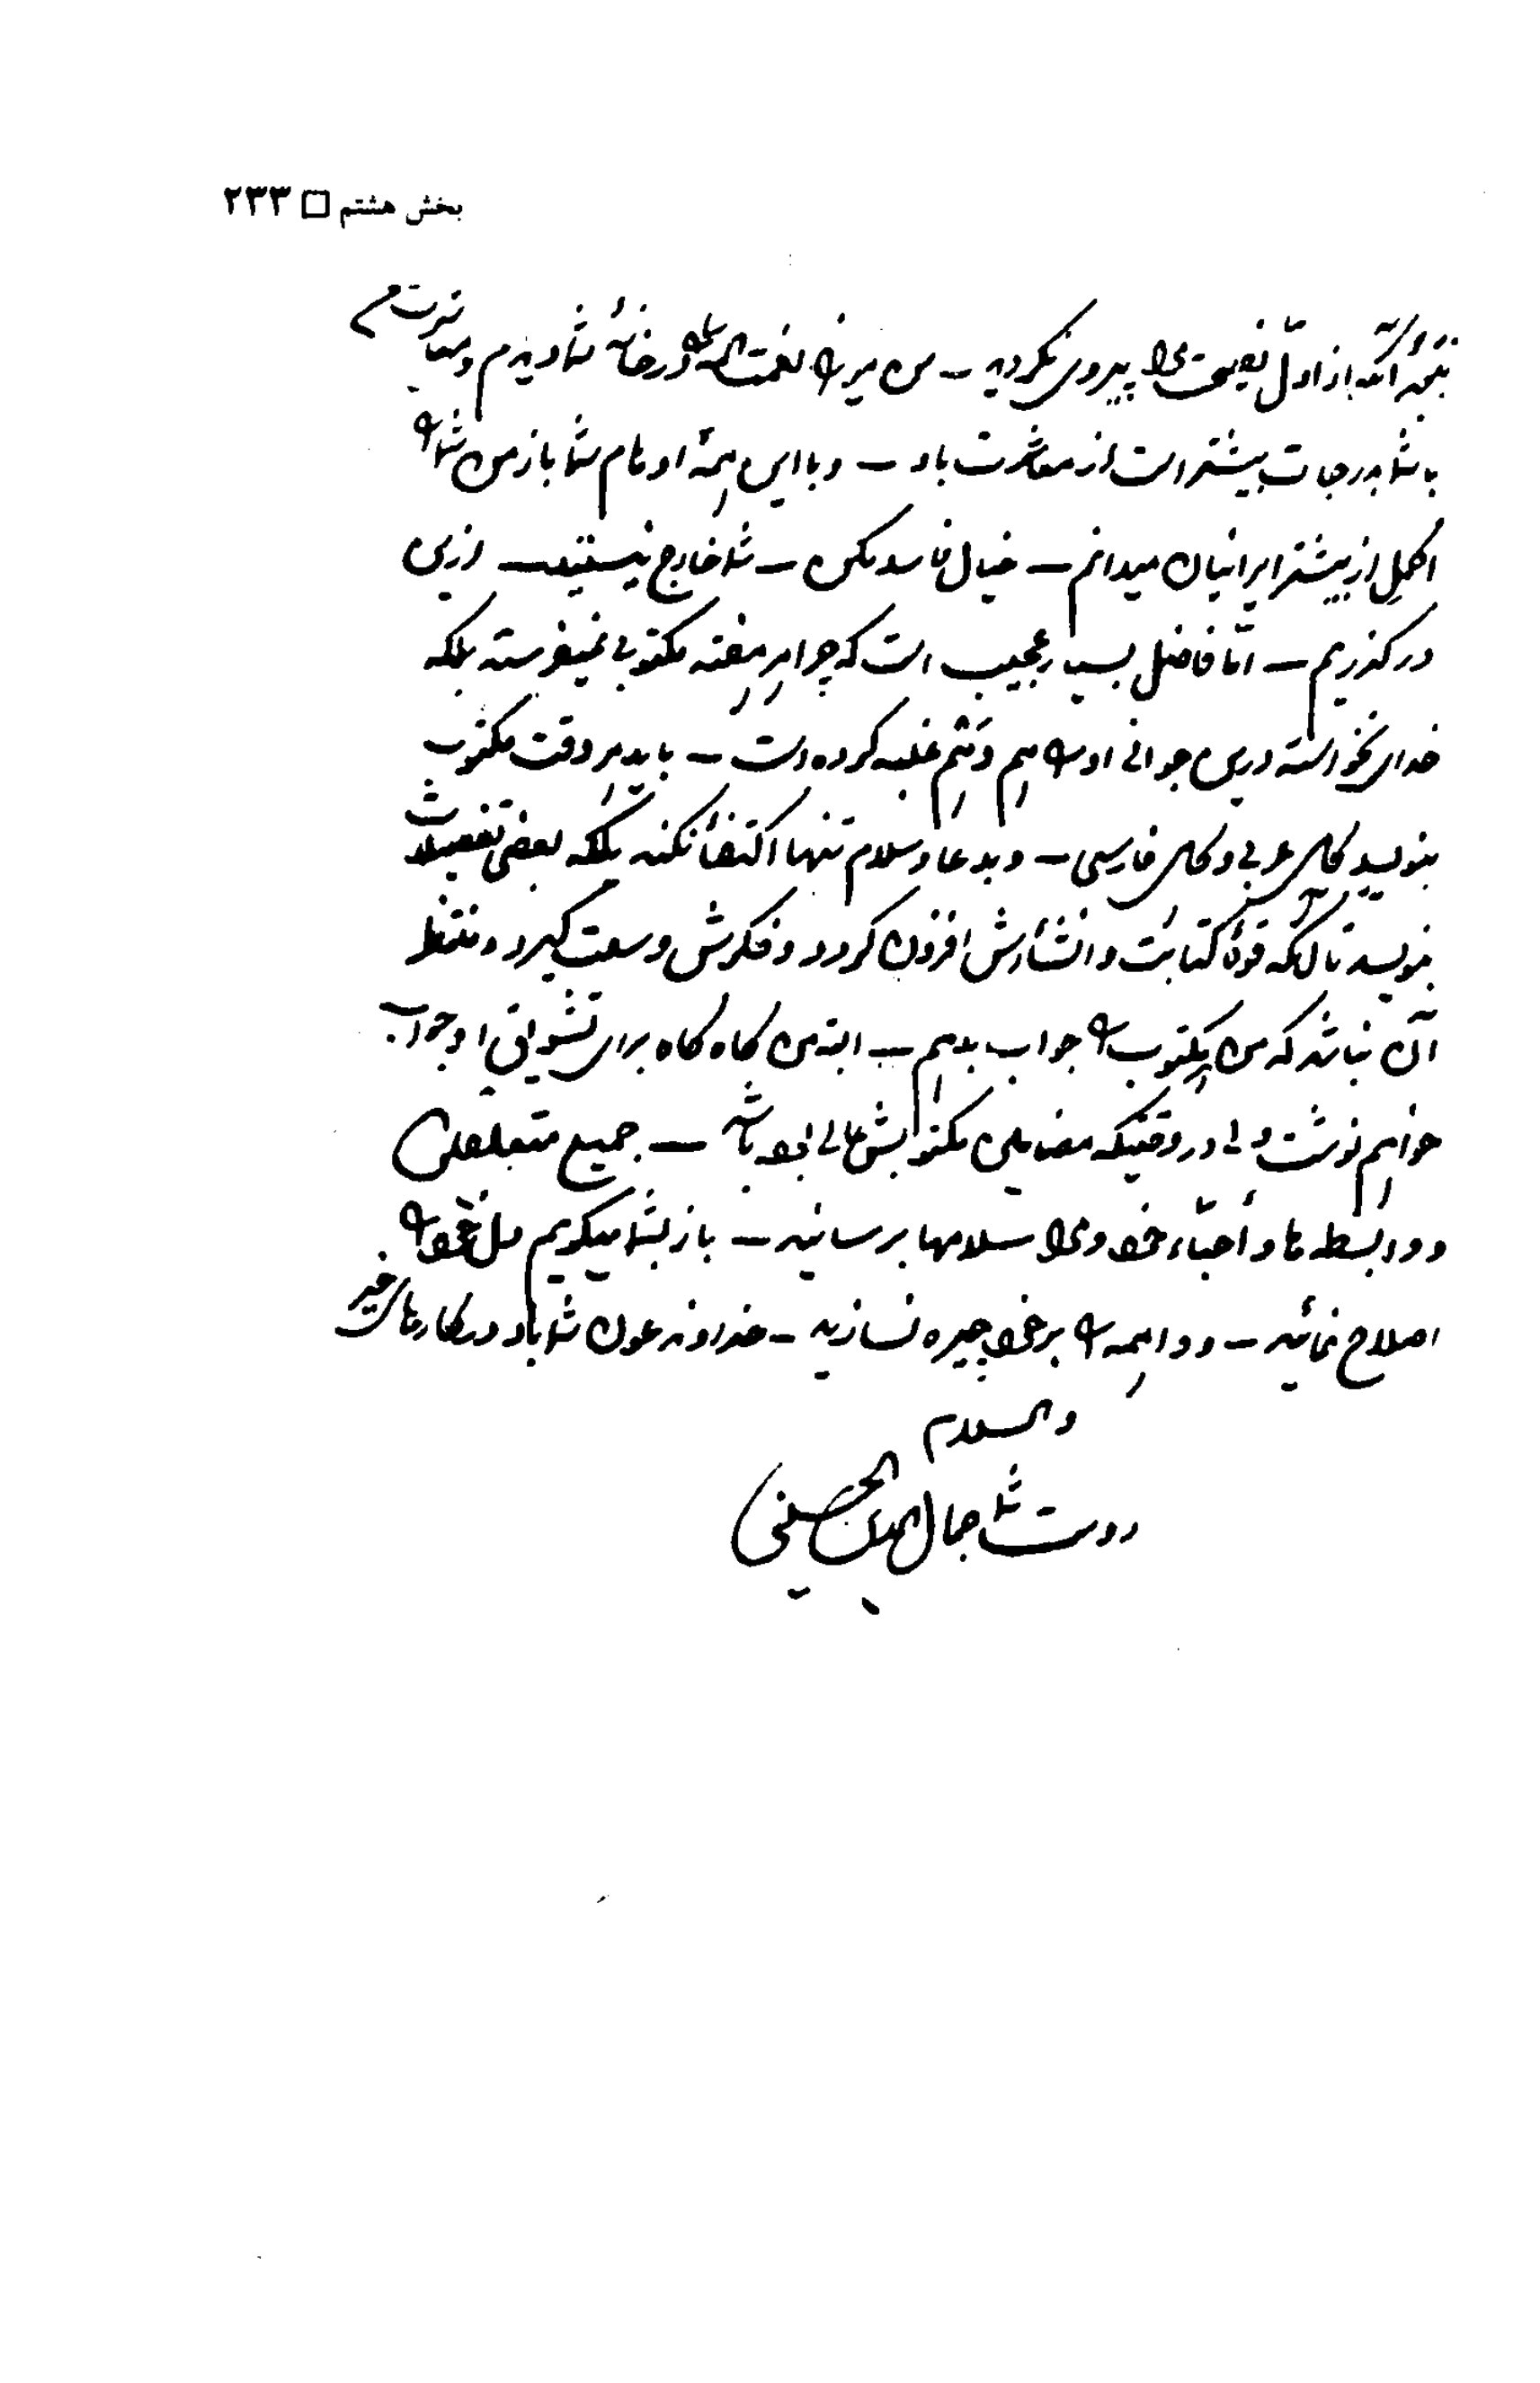 بخش هشتم □ ۲۳۳
نتیجهٔ آنکه از اول نصیحت مرا پیروی نکردید – من میرزا نعمت الله را در خانهٔ شما دیدم و معاشرتم
با شما بدرجات بیشتر است از معاشرت با او – و با این همهٔ اوهام شما باز من شما را
اکمل از بیشتر ایرانیان میدانم – خیال فاسد مکن – شما خارج نیستید – ازین
در گذریم – امّا فاضل بسیار عجیب است که چرا هر هفته مکتوبی نمیفرستد بلکه
خدای نخواسته درین جوانی او را هم وَهْم غلبه کرده است – باید هر وقت مکتوب
بنویسد گاهی عربی و گاهی فارسی – و بدعا و سلام تنها اکتفأ نکند بلکه بعضی تفصیلات
بنویسد تا آنکه قوهٔ کتابت و انشأش افزون گردد و فکرش وسعت گیرد و منتظر
آن نباشد که من هر مکتوب را جواب بدهم – البته من گاه گاه برای تشویق او جواب
خواهم نوشت ولی در وقتیکه مضامین مکتوبش عالی بوده باشد – جمیع متعلقین
و وابسطه ها و أحبّاء خود و مرا سلامها برسانید – باز بشما میگویم دل خود را
اصلاح نمائید – و واهمه را بر خود چیره نسازید – خداوند عون شما باد در کارهای خیر
والسلام
دوست شما جمال الدین الحسینی